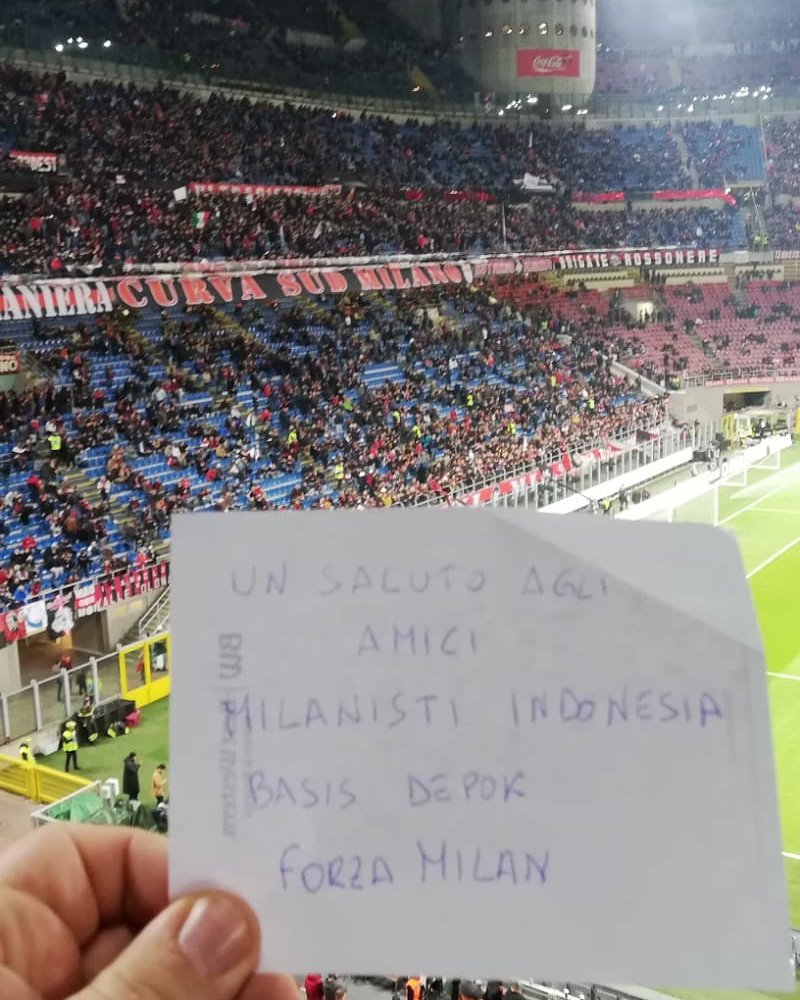 Coca-Cola
ANIERA CURVA SUD MILANO BRIGATE ROSSONERE
UN SALUTO AGLI
AMICI
MILANISTI INDONESIA
BASIS DEPOK
FORZA MILAN
BW
Western